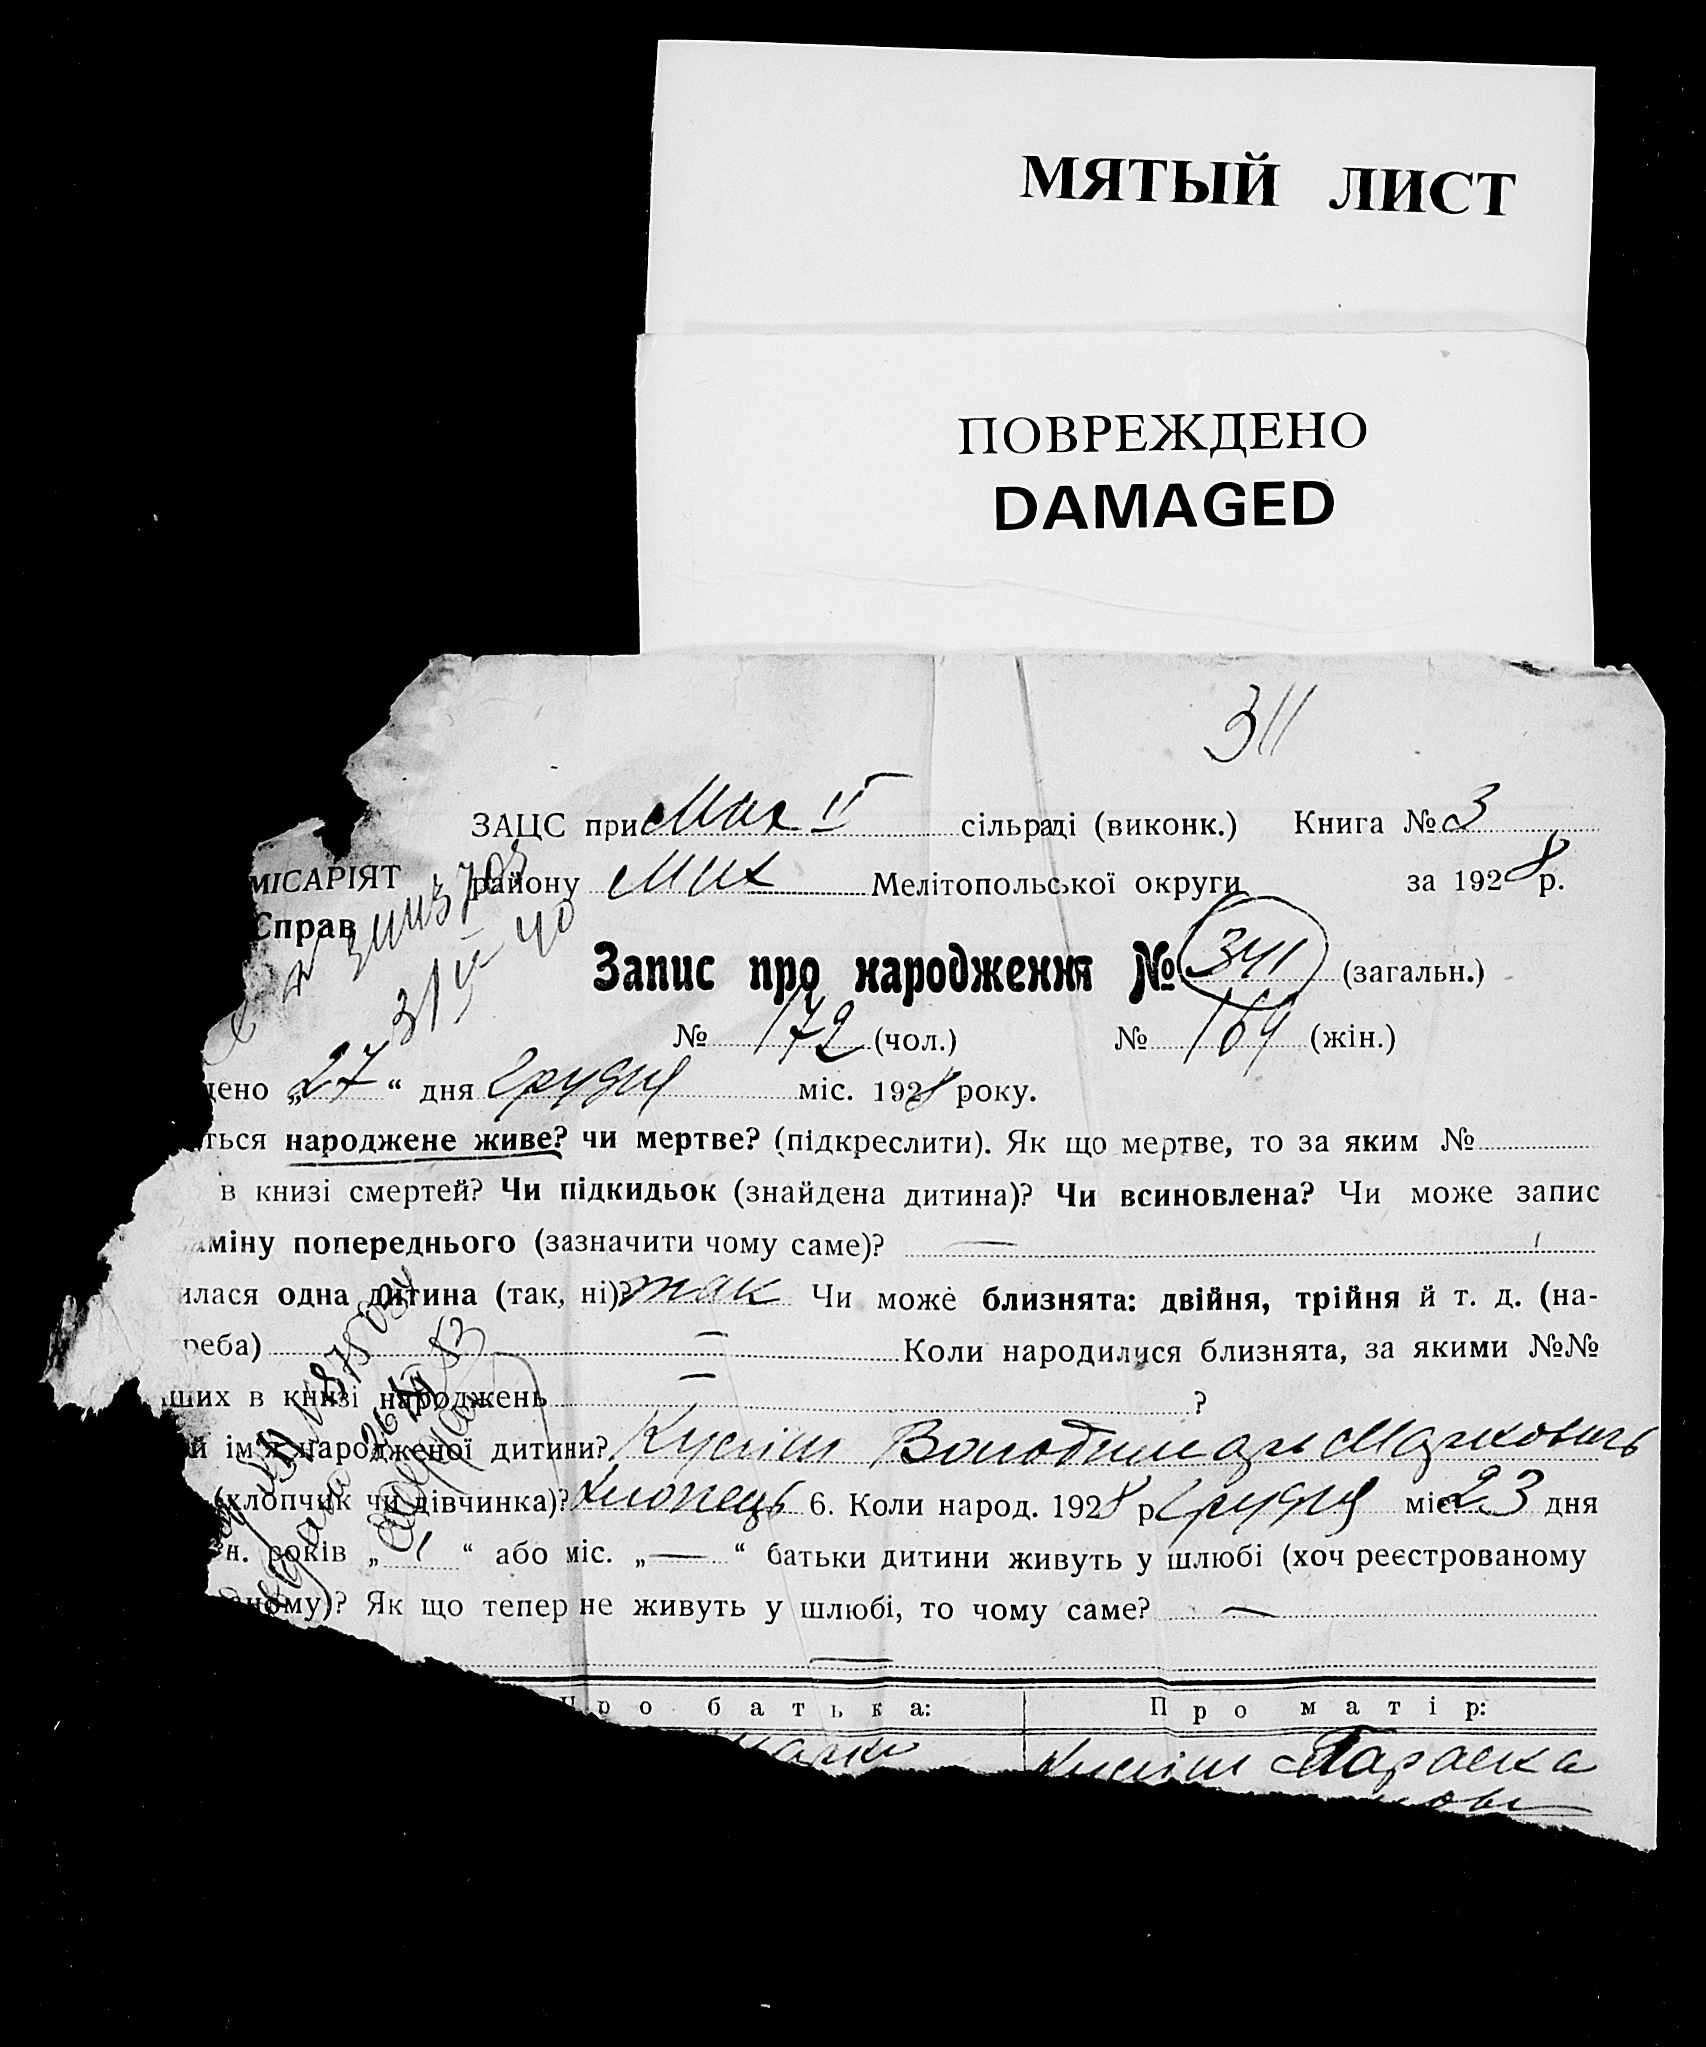 МЯТЫЙ ЛИСТ
ПОВРЕЖДЕНО
DAMAGED
311
ЗАЦС при Мих II сільраді (виконк.) Книга № 3
МІСАРІЯТ району Мих Мелітопольської округи за 1928 р.
Справ
31 V 40
Запис про народження № 341 (загальн.)
№ 172 (чол.) № 169 (жін.)
дено „27“ дня грудня міс. 1928 року.
ться народжене живе? чи мертве? (підкреслити). Як що мертве, то за яким №
в книзі смертей? Чи підкидьок (знайдена дитина)? Чи всиновлена? Чи може запис
аміну попереднього (зазначити чому саме)? —
илася одна дитина (так, ні)? так Чи може близнята: двійня, трійня й т. д. (на-
реба) — Коли народилися близнята, за якими №№
ших в книзі народжень — ?
й ім'я народженої дитини? Володимир Маркович
(хлопчик чи дівчинка)? хлопець 6. Коли народ. 1928 р. грудня міс. 23 дня
н. років „1“ або міс. „—“ батьки дитини живуть у шлюбі (хоч реєстрованому
ному)? Як що тепер не живуть у шлюбі, то чому саме? —
Про батька: Про матір:
Марко Параска